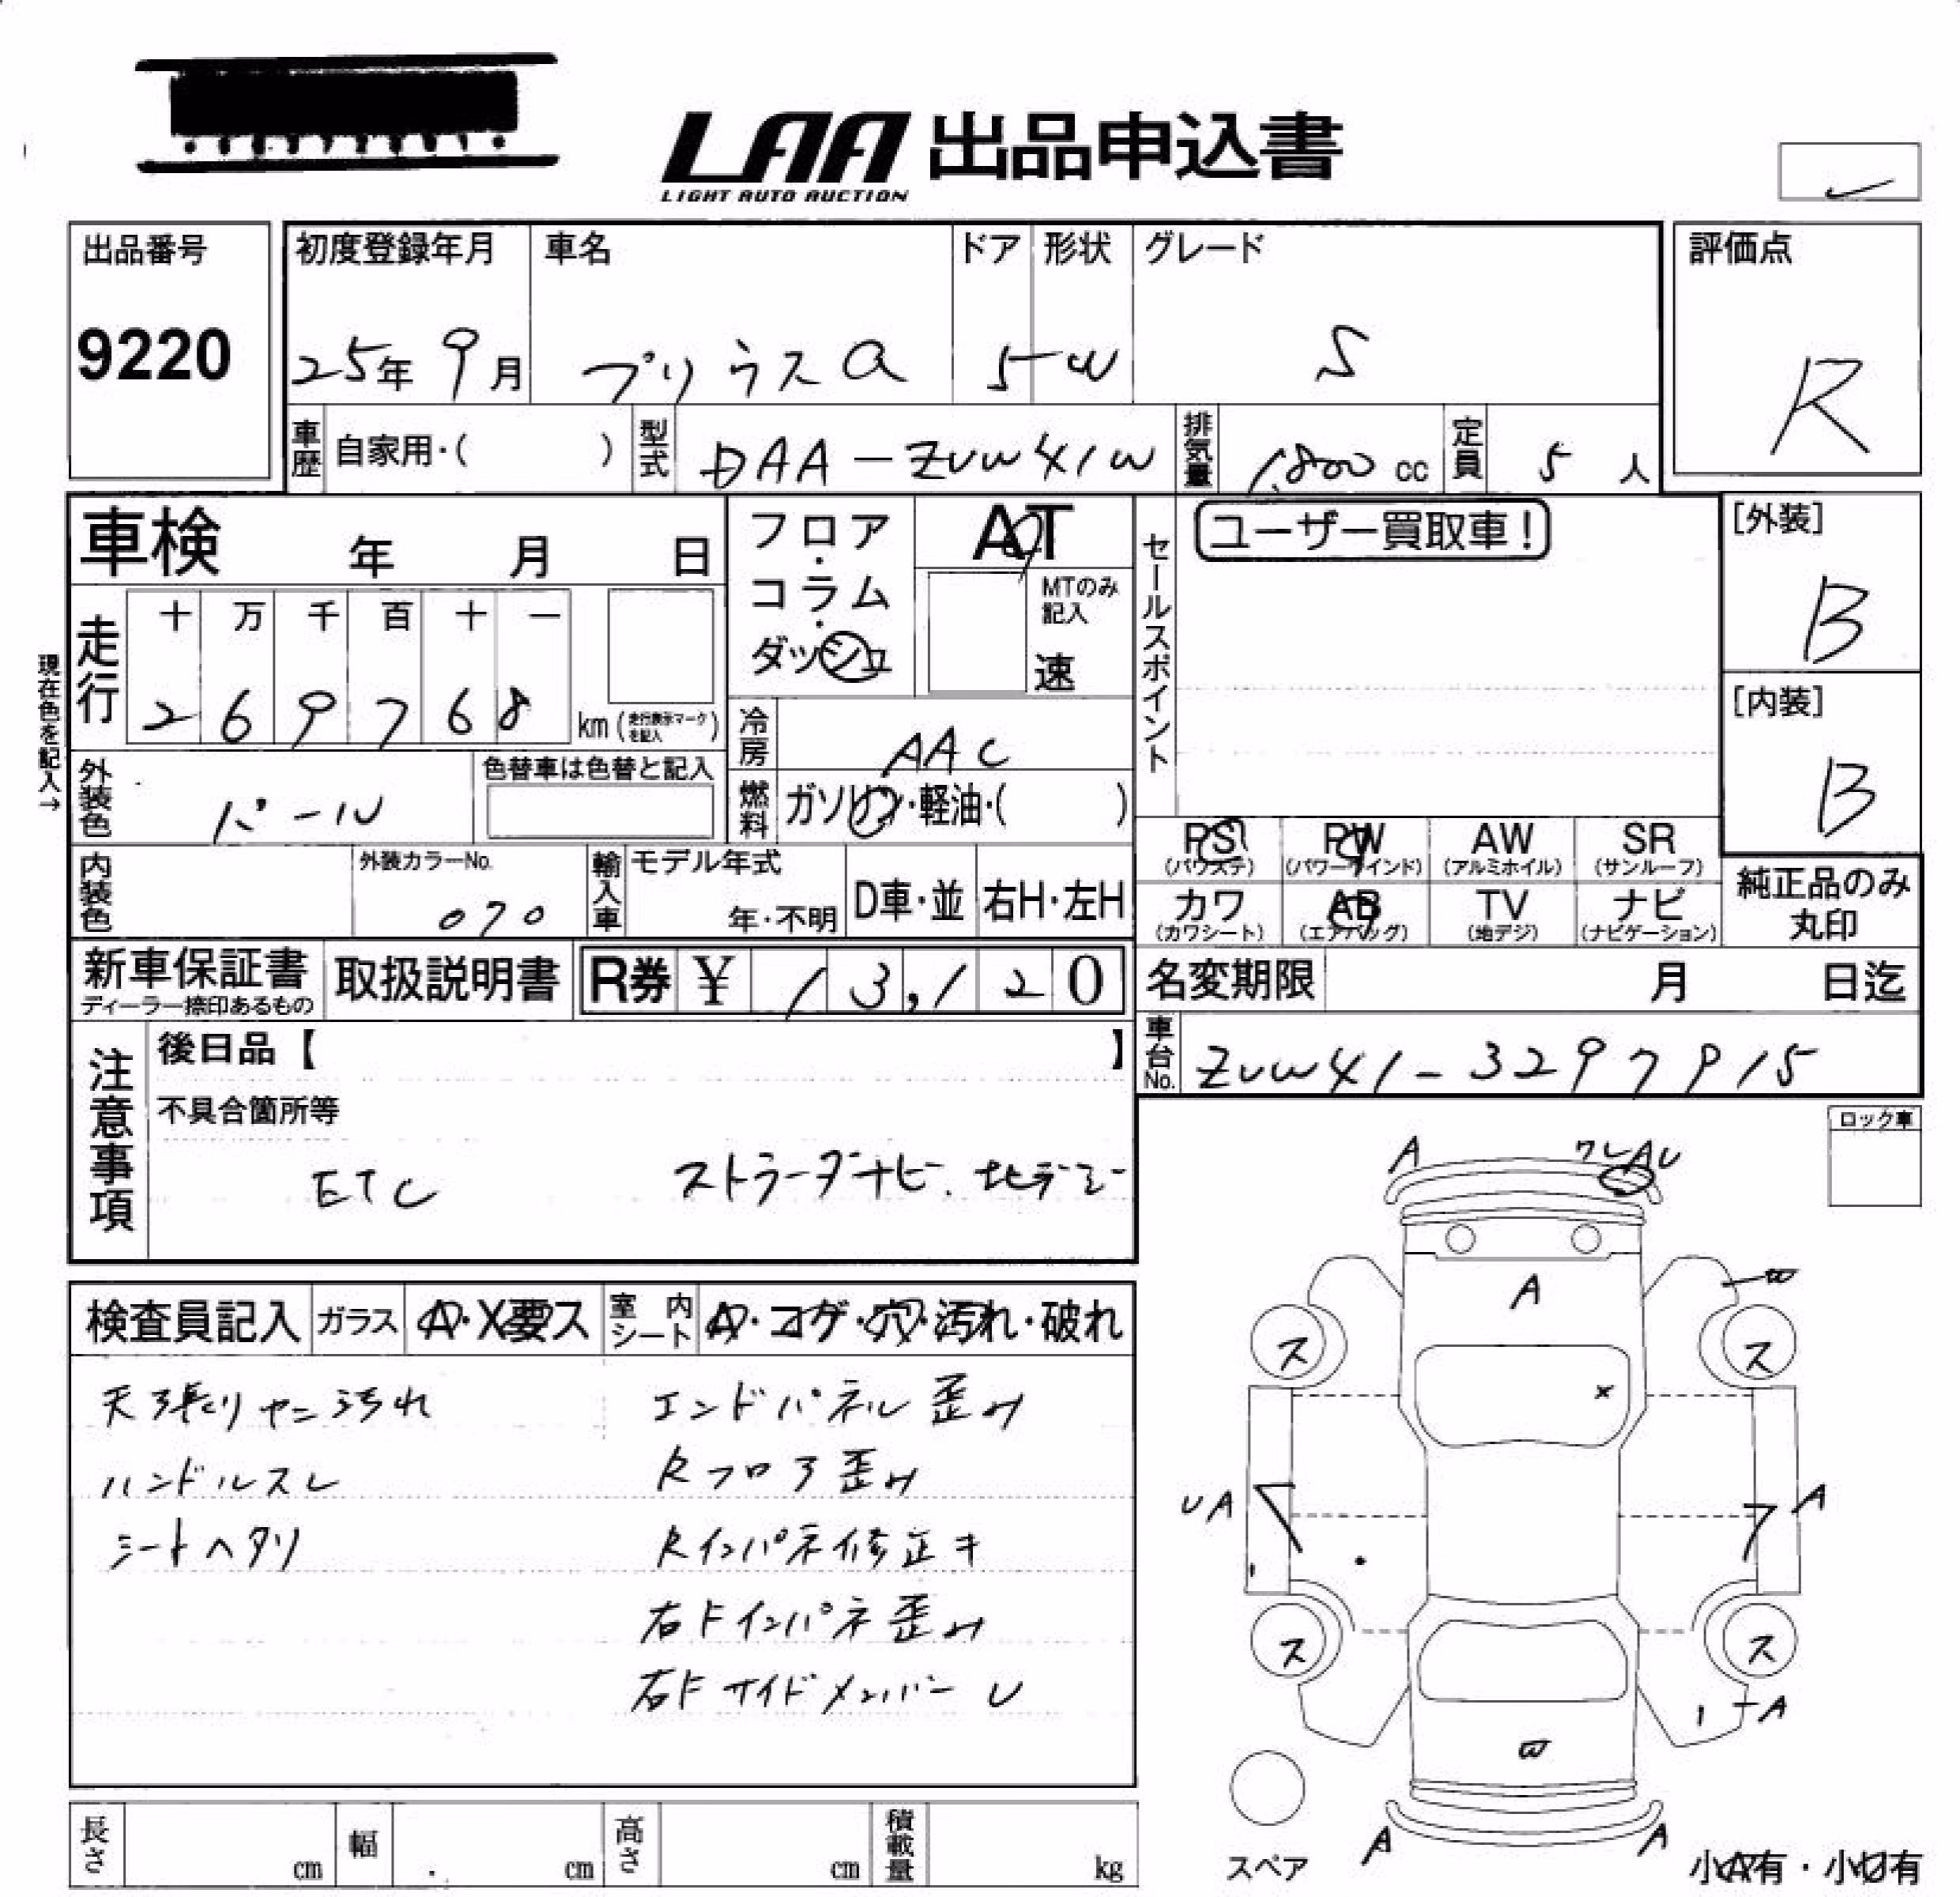 LAA 出品申込書
LIGHT AUTO AUCTION
出品番号
9220
初度登録年月
25年 9月
車名
プリウスα
ドア
5
形状
W
グレード
S
評価点
R
車歴
自家用・( )
型式
DAA-ZVW41W
排気量
1,800 cc
定員
5 人
車検 年 月 日
フロア・コラム・ダッシュ
AT
MTのみ記入
速
セールスポイント
ユーザー買取車!
[外装]
B
[内装]
B
現在色を記入→
走行
十 万 千 百 十 一
2 6 9 7 6 8 km (走行表示マークを記入)
冷房
AAC
外装色
パール
色替車は色替と記入
燃料
ガソリン・軽油・( )
PS
(パワステ)
PW
(パワーウインド)
AW
(アルミホイル)
SR
(サンルーフ)
内装色
外装カラーNo.
070
輸入車
モデル年式
年・不明
D車・並
右H・左H
カワ
(カワシート)
AB
(エアバッグ)
TV
(地デジ)
ナビ
(ナビゲーション)
純正品のみ
丸印
新車保証書
ディーラー捺印あるもの
取扱説明書
R券 ¥ 13,120
名変期限 月 日迄
車台No.
ZVW41-3297915
注意事項
後日品【 】
不具合箇所等
ETC ストラーダナビ. 地デジ
ロック車
検査員記入
ガラス
A・X要ス
室内シート
A・コゲ・穴・汚れ・破れ
天張りヤニ汚れ エンドパネル歪み
ハンドルスレ Rフロア歪み
シートヘタリ Rインパネ修正キ
右Fインパネ歪み
右FサイドメンバーU
A
ワレAU
A
W
ス
ス
x
UA
A
ス
ス
A
W
A
A
スペア
小A有・小U有
長さ cm
幅 cm
高さ cm
積載量 kg